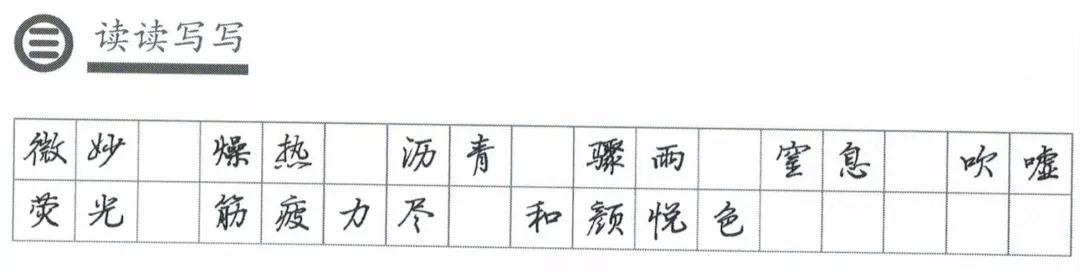 三 读读写写
微妙 燥热 沥青 骤雨 窒息 吹嘘
荧光 筋疲力尽 和颜悦色